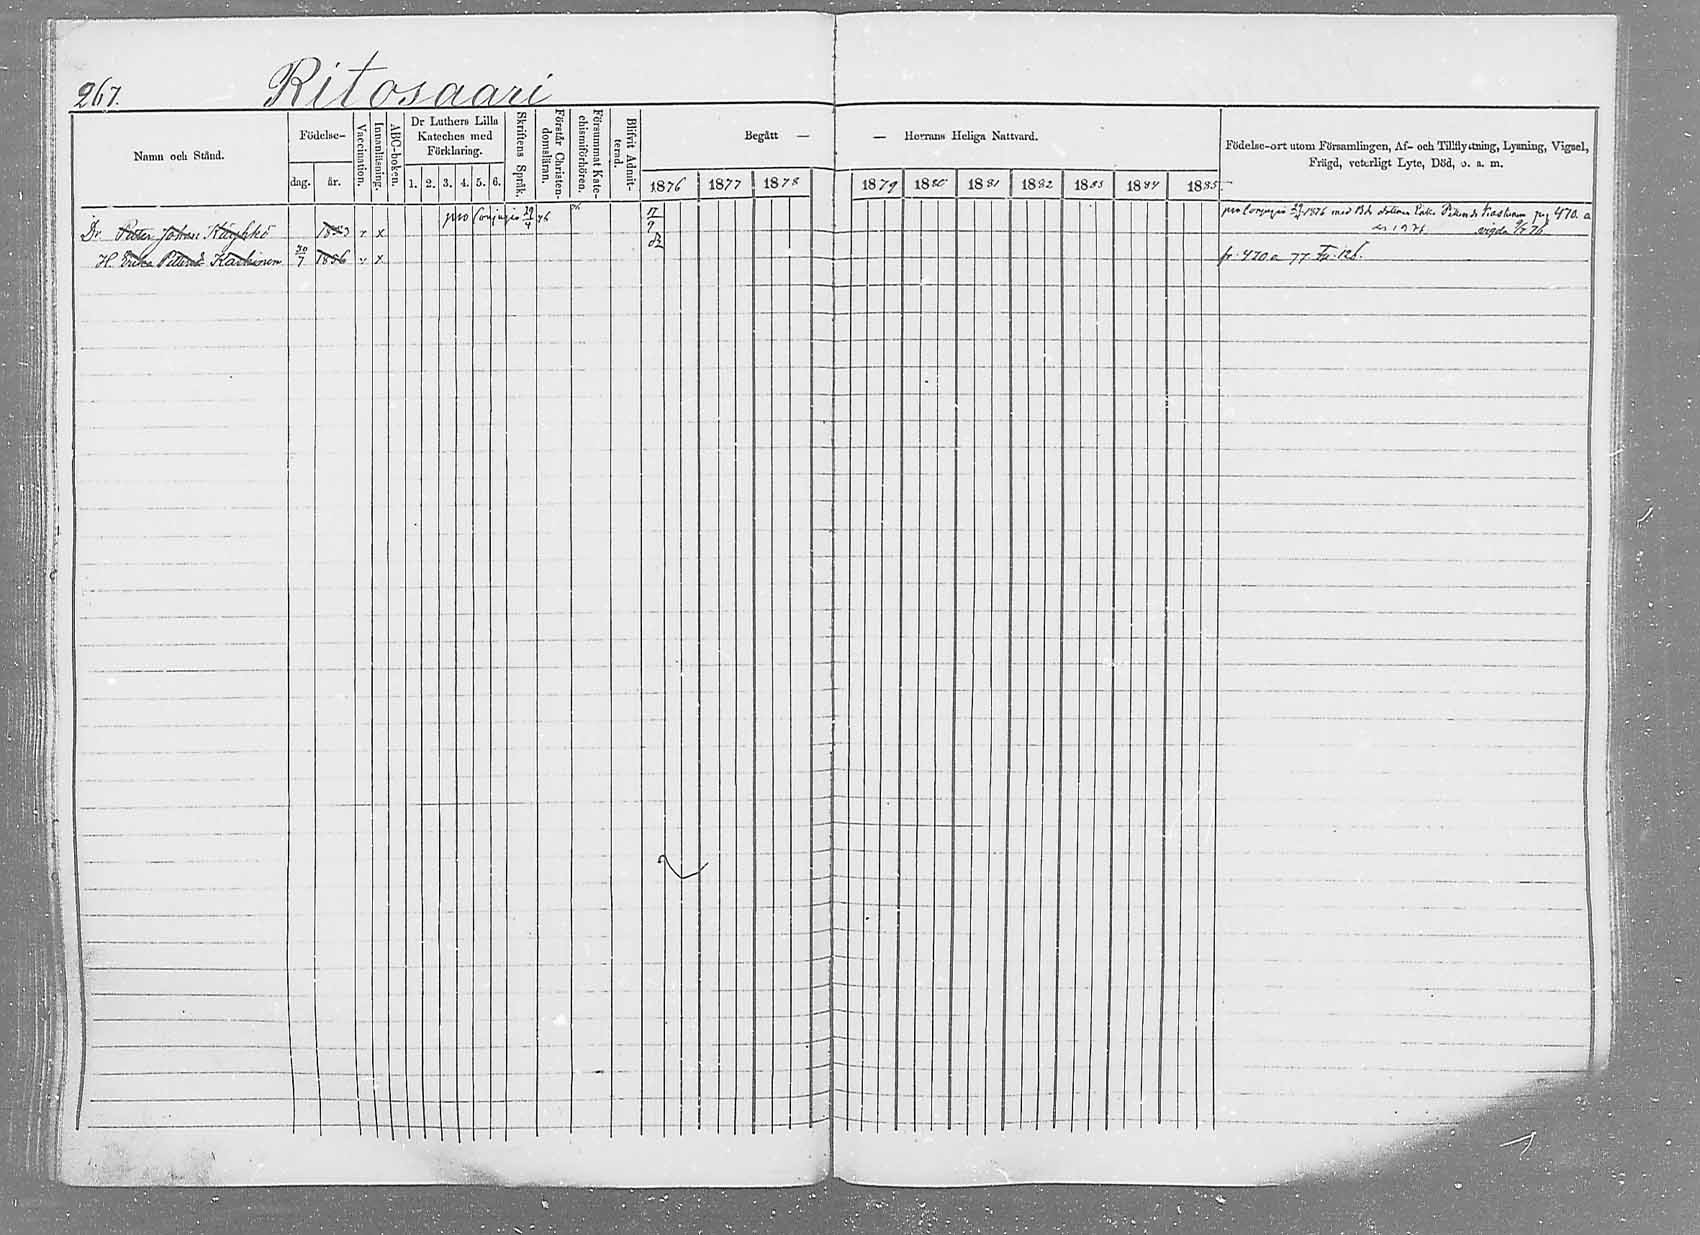 267. Ritosaari
Namn och Stånd.
Födelse-
dag. år.
Vaccination.
Innanläsning.
ABC-boken.
Dr Luthers Lilla
Kateches med
Förklaring.
1. 2. 3. 4. 5. 6.
Skriftens Språk.
Förstår Christen-
domsläran.
Försummat Kate-
chismiförhören.
Blifvit Admit-
terad.
Begått —
— Herrans Heliga Nattvard.
1876 1877 1878 1879 1880 1881 1882 1883 1884 1885
Födelse-ort utom Församlingen, Af- och Tillflyttning, Lysning, Vigsel,
Frägd, veterligt Lyte, Död, o. s. m.
Dr. Johans 1853 pro Conjugio 29/4 76 pro Conjugio 29/4 1876 med pag 470. a
vigda 76
H. Erica Petersd. Karhinen 30/7 1856 fr. 470 a 77